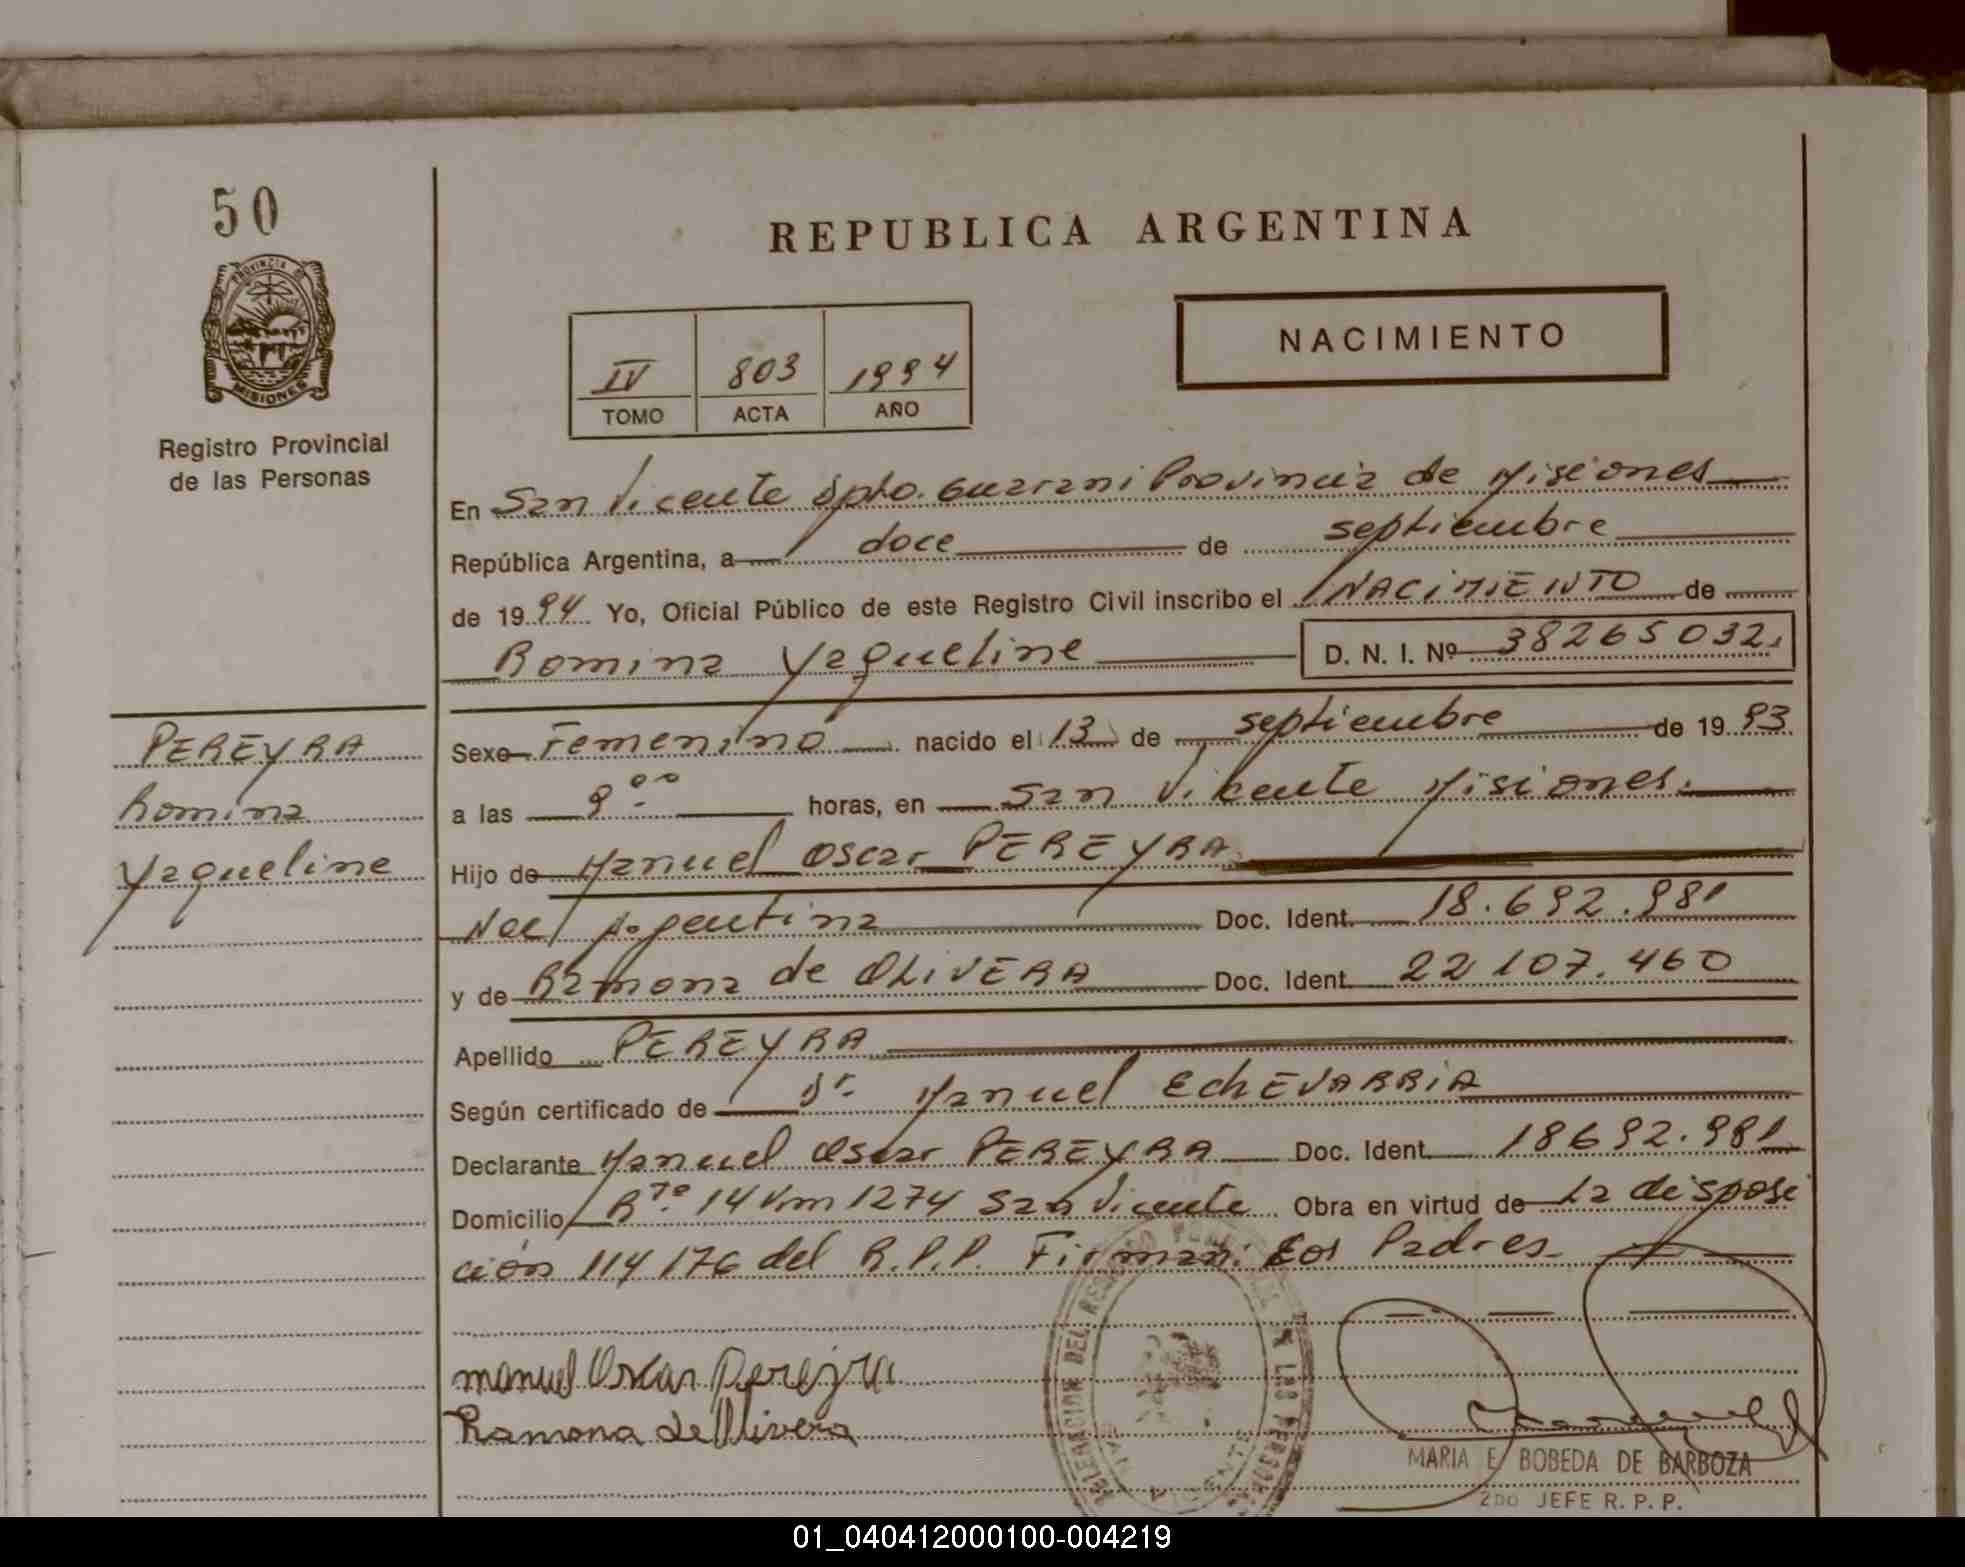 50
REPUBLICA ARGENTINA
PROVINCIA D
MISIONES
Registro Provincial
de las Personas
IV 803 1994
TOMO ACTA AÑO
NACIMIENTO
En San Vicente Dpto. Guarani Provincia de Misiones
República Argentina, a doce de septiembre
de 1994 Yo, Oficial Público de este Registro Civil inscribo el NACIMIENTO de
Romina Yaqueline D. N. I. Nº 38265032
PEREYRA
Romina
Yaqueline
Sexo Femenino nacido el 13 de septiembre de 1993
a las 9 00 horas, en San Vicente Misiones.
Hijo de Manuel Oscar PEREYRA
Nac Argentina Doc. Ident. 18.692.981
y de Ramona de OLIVERA Doc. Ident. 22107.460
Apellido PEREYRA
Según certificado de Dr. Manuel EchEVARRIA
Declarante Manuel Oscar PEREYRA Doc. Ident. 18692.981
Domicilio R Ta. 14 Km 1274 San Vicente Obra en virtud de la disposi
ción 114/76 del R.P.P. Firman: Los Padres
manuel Oscar Pereyra
Ramona de Olivera
DELEGACION DEL REGISTRO LAS PERSONAS
SAN VICENTE
MARIA E. BOBEDA DE BARBOZA
2DO JEFE R. P. P.
01_040412000100-004219